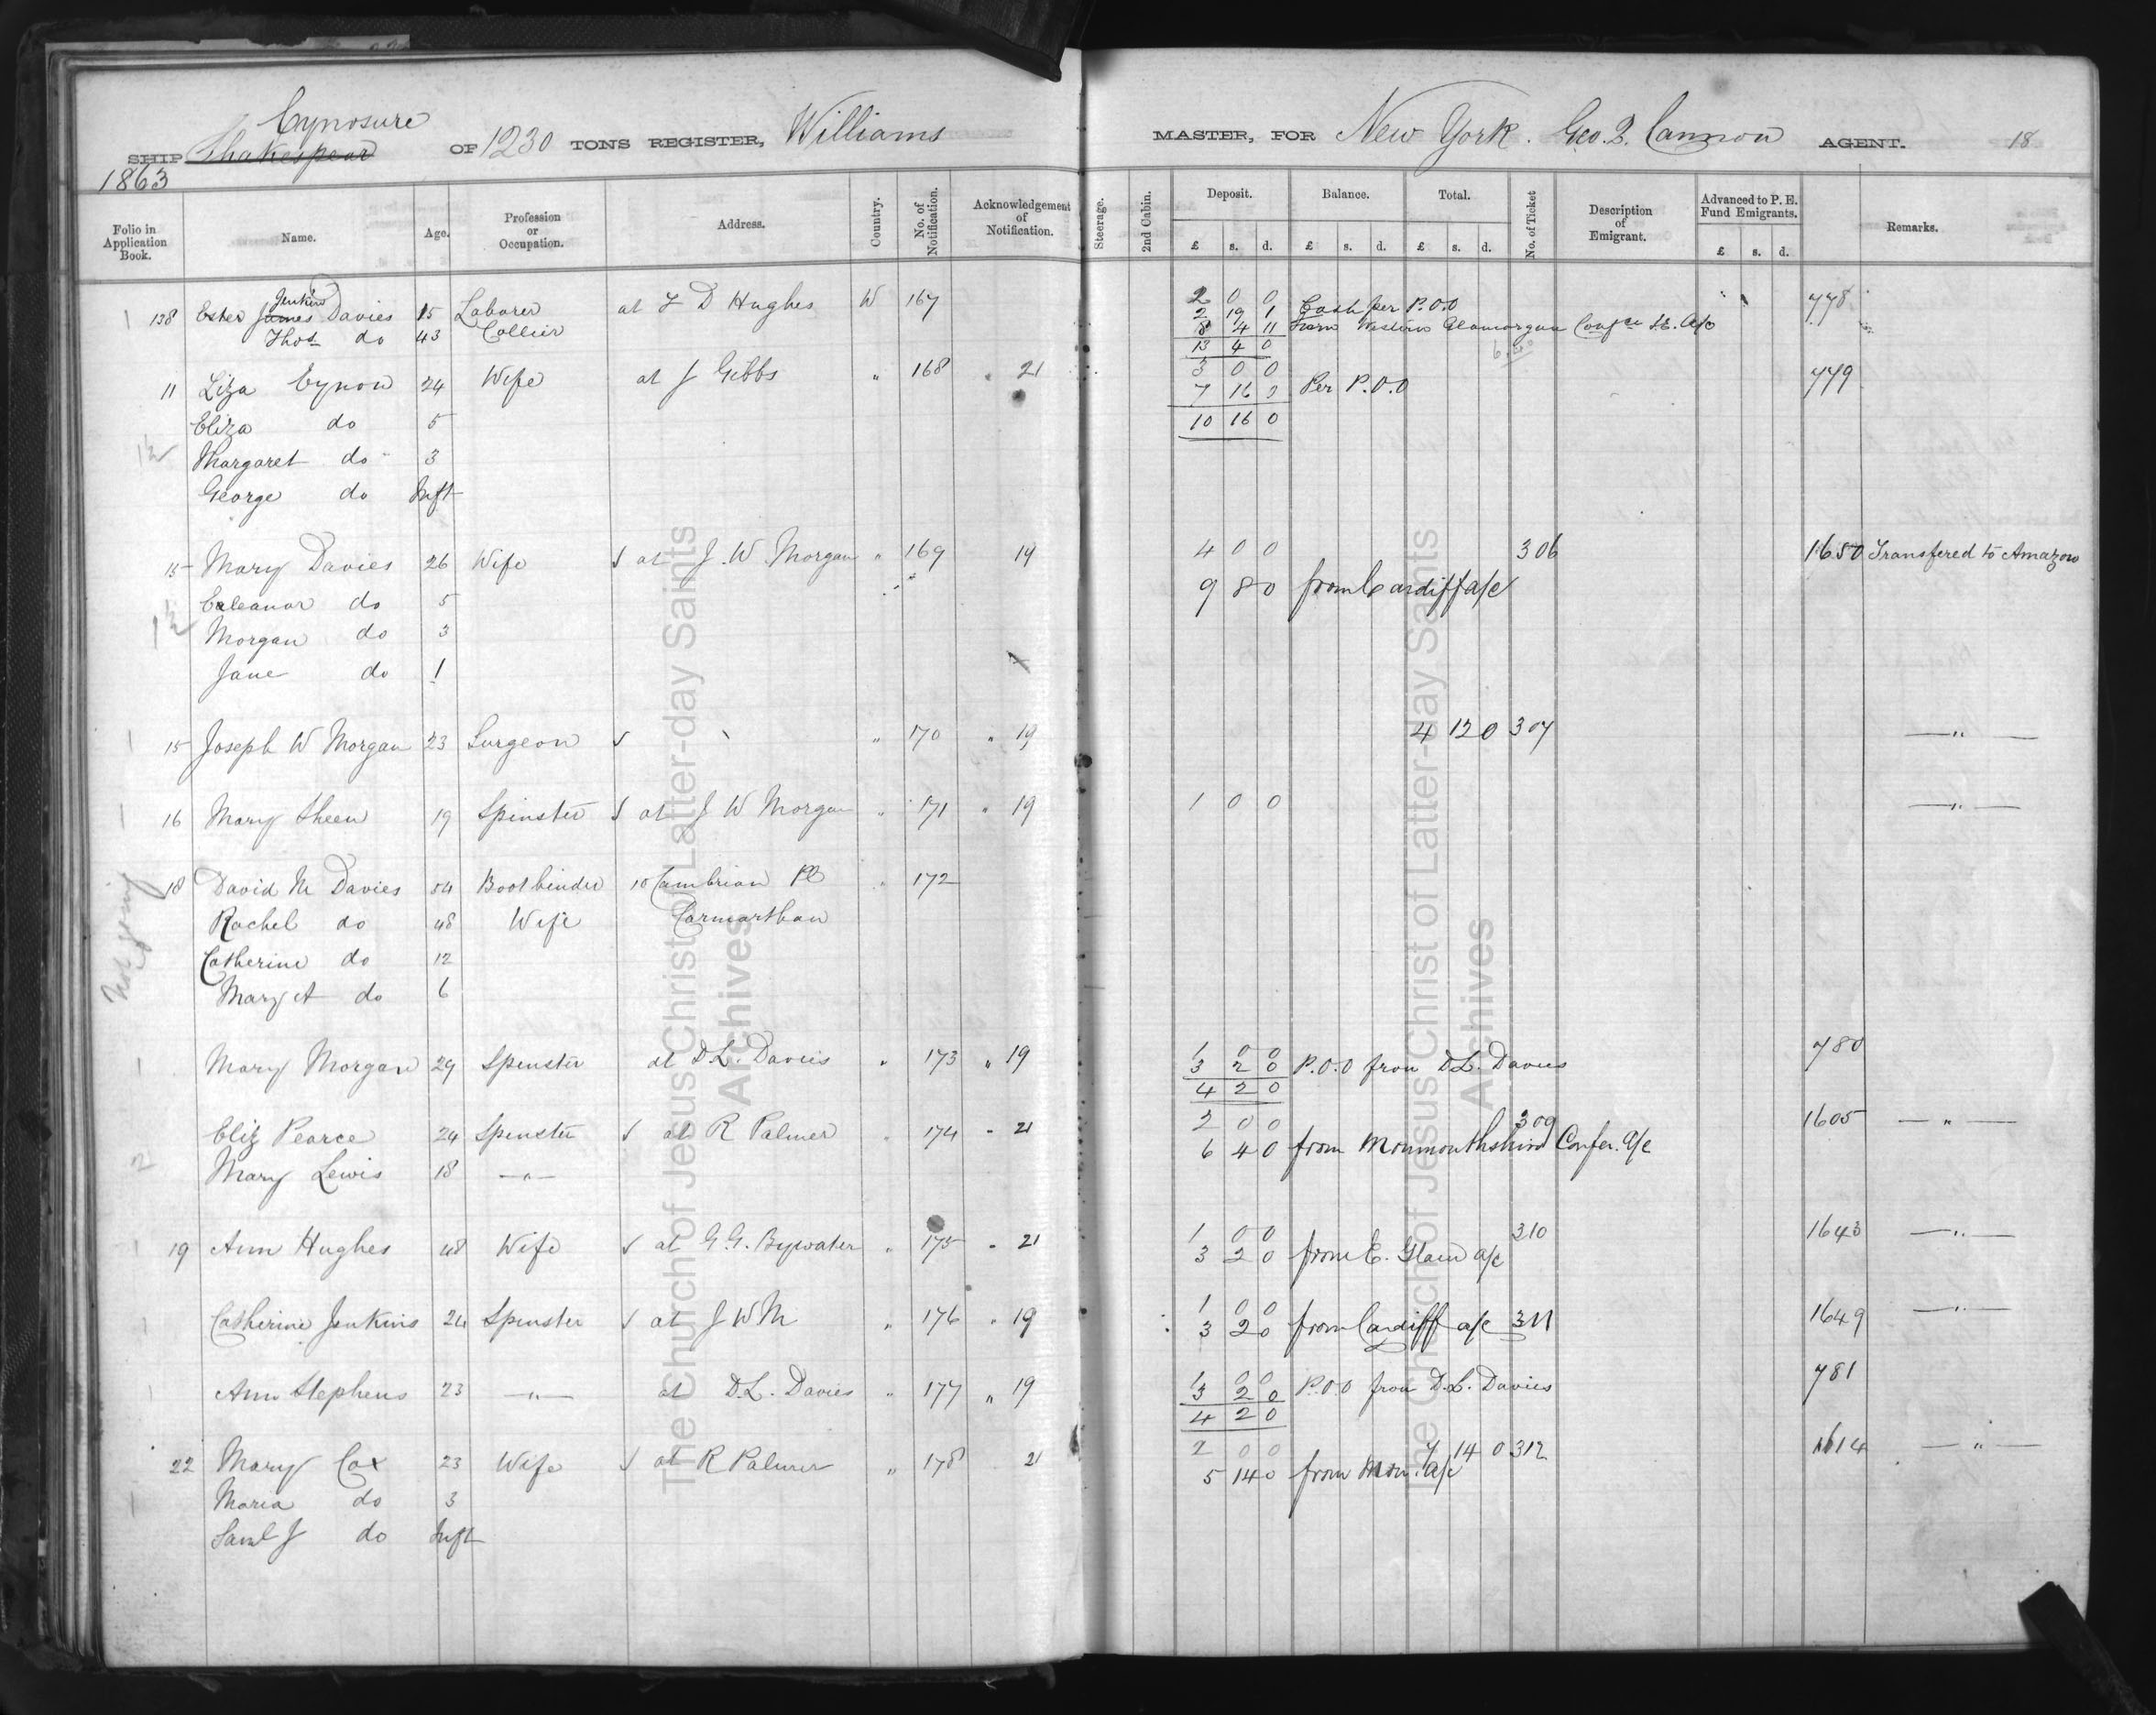 Cynosure
SHIP Shakespear OF 1230 TONS REGISTER, Williams MASTER, FOR New York. Geo. Q. Cannon AGENT. 18
1863
Folio in Application Book. Name. Age. Profession or Occupation. Address. Country. No. of Notification. Acknowledgement of Notification. Steerage. 2nd Cabin. Deposit. £ s. d. Balance. £ s. d. Total. £ s. d. No. of Ticket Description of Emigrant. Advanced to P. E. Fund Emigrants. £ s. d. Remarks.
Jenkins
1 138 Ester James Davies 15 Laborer at T D Hughes W 167 2 0 0 778
2 19 1 Cash per P.O.O
Thos do 43 Collier 8 4 11 from Western Glamorgan
13 4 0
11 Liza Eynon 24 Wife at J Gibbs " 168 " 21 3 0 0 779
7 16 0 Per P.O.O
Eliza do 5 10 16 0
Margaret do 3
George do Inft
15 Mary Davies 26 Wife at J. W. Morgan " 169 19 4 0 0 306 1650 Transfered to Amazon
Eleanor do 5 9 8 0 from Cardiff a/c
Morgan do 3
Jane do 1
15 Joseph W Morgan 23 Surgeon " 170 " 19 4 12 0 307 — " —
16 Mary Sheen 19 Spinster at J W Morgan " 171 " 19 1 0 0 — " —
Not going
18 David M Davies 54 Bookbinder 10 Cambrian Pl " 172
Rachel do 48 Wife Carmarthan
Catherine do 12
Mary A do 6
Mary Morgan 29 Spinster at D.L. Davies " 173 " 19 1 0 0 780
3 2 0 P.O.O from D.L. Davies
4 2 0
Eliz Pearce 24 Spinster at R Palmer " 174 " 21 2 0 0 309 1605 — " —
6 4 0 from Monmouthshire Confer. a/c
2 Mary Lewis 18 — " —
19 Ann Hughes 48 Wife at G.G. Bywater " 175 " 21 1 0 0 310 1643 — " —
3 2 0 from E. Glam a/c
Catherine Jenkins 24 Spinster at J W M " 176 " 19 1 0 0 1649 — " —
3 2 0 from Cardiff a/c 311
Ann Stephens 23 — " — at D.L. Davies " 177 " 19 1 0 0 781
3 2 0 P.O.O from D.L. Davies
4 2 0
22 Mary Cox 23 Wife at R Palmer " 178 21 2 0 0 7 14 0 312 1614 — " —
5 14 0 from Mon. a/c
Maria do 3
Saml J do Inft
The Church of Jesus Christ of Latter-day Saints
Archives
The Church of Jesus Christ of Latter-day Saints
Archives